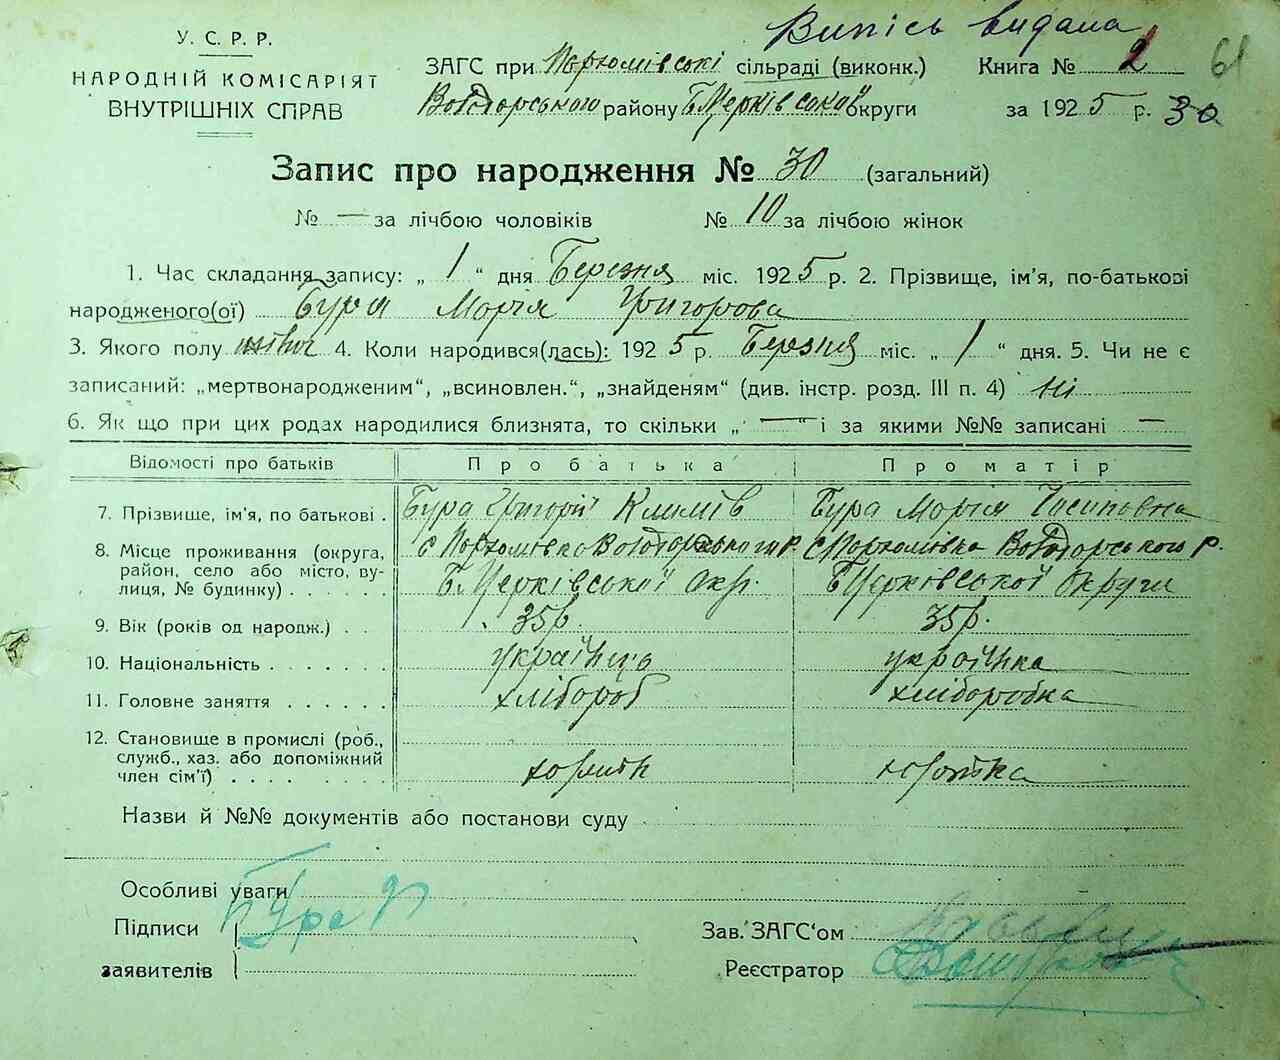 Випісь видана
У. С. Р. Р.
НАРОДНІЙ КОМІСАРІЯТ
ВНУТРІШНІХ СПРАВ
ЗАГС при сільраді (виконк.) Книга № 2 61
району округи за 1925 р. 30
Запис про народження № 30 (загальний)
№ — за лічбою чоловіків № 10 за лічбою жінок
1. Час складання запису: „ 1 “ дня Березня міс. 1925 р. 2. Прізвище, ім'я, по-батькові
народженого(ої) Бура Марія Григорова
3. Якого полу жіноч 4. Коли народився(лась): 1925 р. Березня міс. „ 1 “ дня. 5. Чи не є
записаний: „мертвонародженим“, „всиновлен.“, „знайденям“ (див. інстр. розд. III п. 4) ні
6. Як що при цих родах народилися близнята, то скільки „ — “ і за якими №№ записані —
Відомості про батьків Про батька Про матір
7. Прізвище, ім'я, по батькові . Бура Григорій Климів Бура Марія
8. Місце проживання (округа,
район, село або місто, ву-
лиця, № будинку) . . . . . . Б.Церківської Окр. Б.Церківської округи
9. Вік (років од народж.) . . 35 р. 35 р.
10. Національність . . . . . . . українець українка
11. Головне заняття . . . . . . хлібороб хліборобка
12. Становище в промислі (роб.,
служб., хаз. або допоміжний
член сім'ї) . . . . . . . .
Назви й №№ документів або постанови суду
Особливі уваги
Підписи Бура Г
заявителів
Зав. ЗАГС'ом
Реєстратор